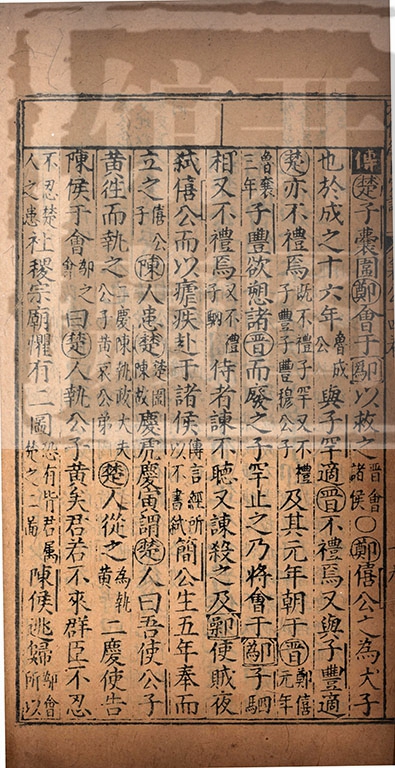 傳楚子囊圍鄭會于鄬以救之晉會諸侯〇鄭僖公之為大子
也於成之十六年魯成公與子罕適晉不禮焉又與子豐適
楚亦不禮焉既不禮子罕又不禮子豐子豐穆公子及其元年朝于晉鄭僖元年
魯襄三年子豐欲愬諸晉而廢之子罕止之乃將會于鄬子駟
相又不禮焉又不禮子駟侍者諫不聽又諫殺之及鄵使賊夜
弒僖公而以瘧疾赴于諸侯傳言經所以不書弒簡公生五年奉而
立之僖公子陳人患楚楚圍陳故慶虎慶寅謂楚人曰吾使公子
黃往而執之二慶陳執政大夫公子黃哀公弟楚人從之為執黃二慶使告
陳侯于會鄬之會曰楚人執公子黃矣君若不來群臣不忍
社稷宗廟懼有二圖恐有背君屬楚之二圖陳侯逃歸鄬會所以
不忍楚人之患